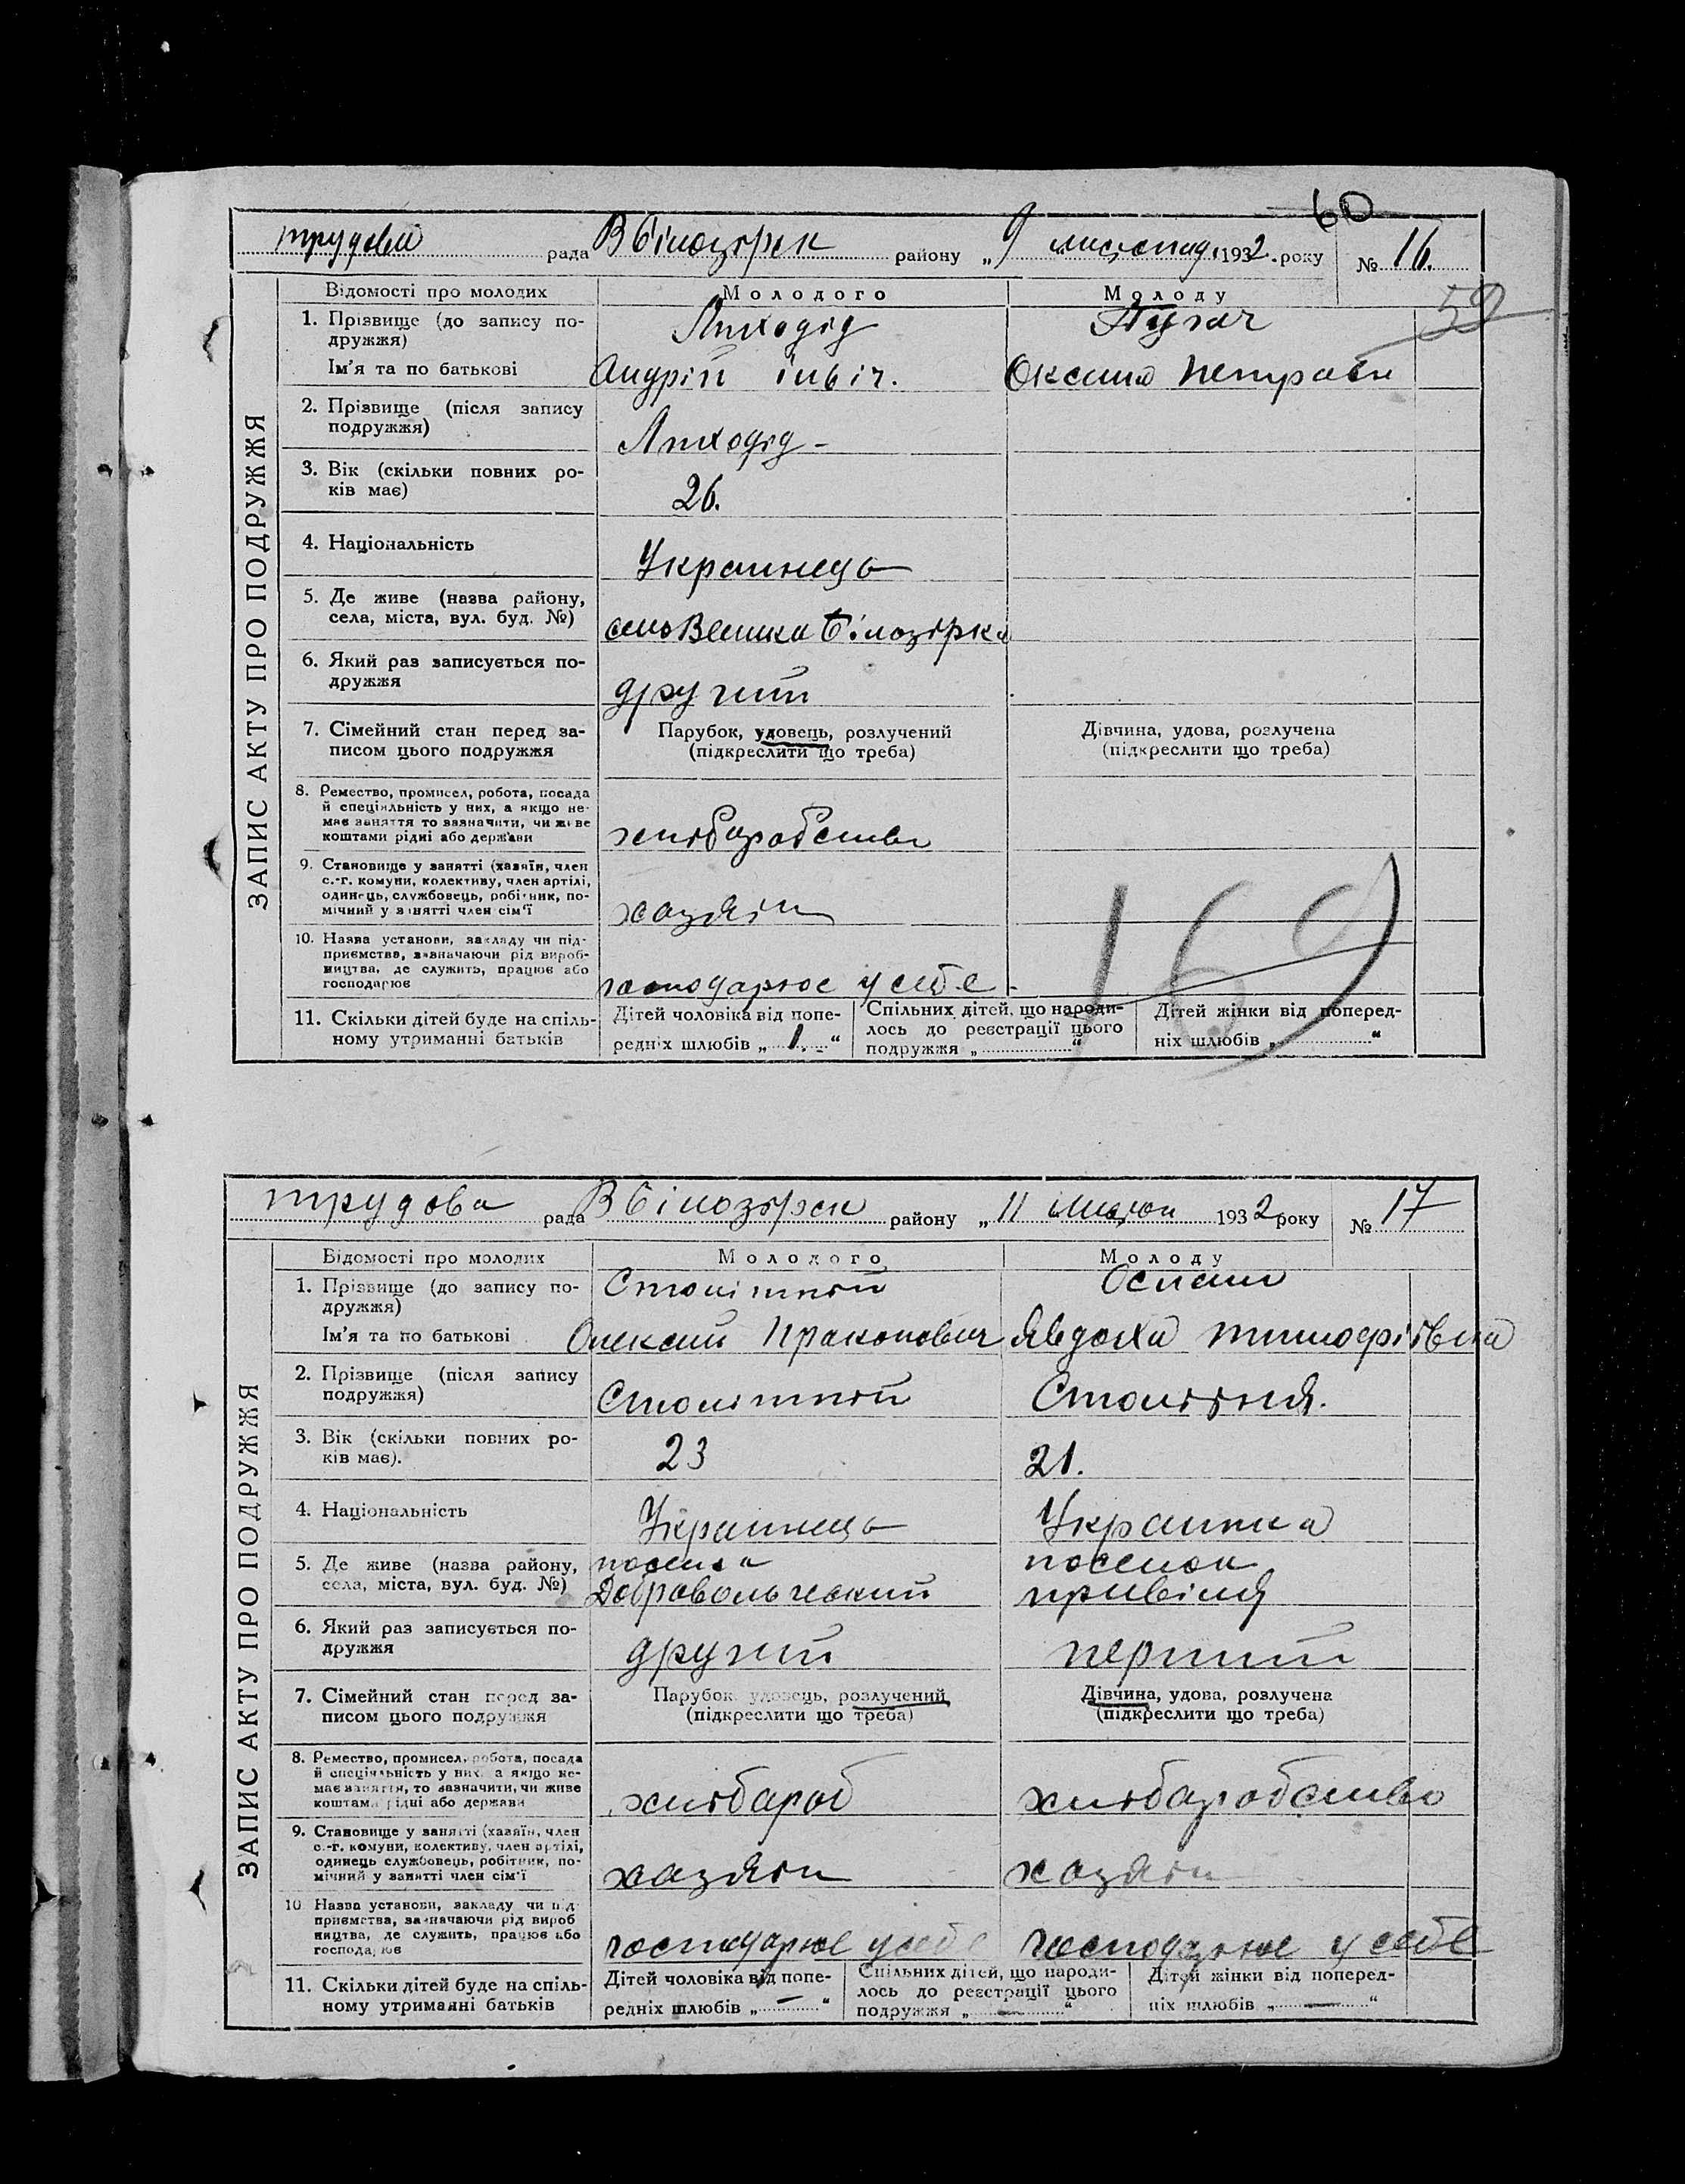 60
трудова рада В Білозірск району „9 листопад. 1932. року № 16.
59
ЗАПИС АКТУ ПРО ПОДРУЖЖЯ
Відомості про молодих Молодого Молоду
1. Прізвище (до запису по-
дружжя) Лиходід Пугач
Ім'я та по батькові Андрій Оксана
2. Прізвище (після запису
подружжя) Лиходід -
3. Вік (скільки повних ро-
ків має) 26.
4. Національність Украинець
5. Де живе (назва району,
села, міста, вул. буд. №) село Велика Білозірка
6. Який раз записується по-
дружжя другий
7. Сімейний стан перед за-
писом цього подружжя Парубок, удовець, розлучений
(підкреслити що треба) Дівчина, удова, розлучена
(підкреслити що треба)
8. Ремество, промисел, робота, посада
й спеціяльність у них, а якщо не-
має заняття то зазначити, чи живе
коштами рідні або держави хлібаробство
9. Становище у занятті (хазяїн, член
с.-г. комуни, колективу, член артілі,
одинець, службовець, робітник, по-
мічний у занятті член сім'ї хазяїн
10. Назва установи, закладу чи під-
приємства, зазначаючи рід вироб-
ництва, де служить, працює або
господарює господарює у себе -
169
11. Скільки дітей буде на спіль-
ному утриманні батьків Дітей чоловіка від попе-
редніх шлюбів „ 1. “ Спільних дітей, що народи-
лось до реєстрації цього
подружжя „ “ Дітей жінки від поперед-
ніх шлюбів „ “
трудова рада В Білозірск району „11 1932 року № 17
ЗАПИС АКТУ ПРО ПОДРУЖЖЯ
Відомості про молодих Молодого Молоду
1. Прізвище (до запису по-
дружжя) Столітній
Ім'я та по батькові Олексий Пракопович Явдоха тимофіївна
2. Прізвище (після запису
подружжя) Столітній Столітня.
3. Вік (скільки повних ро-
ків має). 23 21.
4. Національність Украинець Украинка
5. Де живе (назва району,
села, міста, вул. буд. №) поселок
Добровольческий поселок
привілля
6. Який раз записується по-
дружжя другий перший
7. Сімейний стан перед за-
писом цього подружжя Парубок, удовець, розлучений
(підкреслити що треба) Дівчина, удова, розлучена
(підкреслити що треба)
8. Ремество, промисел, робота, посада
й спеціяльність у них, а якщо не-
має заняття, то зазначити, чи живе
коштами рідні або держави хлібароб хлібаробство
9. Становище у занятті (хазяїн, член
с.-г. комуни, колективу, член артілі,
одинець службовець, робітник, по-
мічний у занятті член сім'ї хазяїн хазяїн
10 Назва установи, закладу чи під-
приємства, зазначаючи рід вироб
ництва, де служить, працює або
господарює господарює у себе господарює у себе
11. Скільки дітей буде на спіль-
ному утриманні батьків Дітей чоловіка від попе-
редніх шлюбів „ — “ Спільних дітей, що народи-
лось до реєстрації цього
подружжя „ — “ Дітей жінки від поперед-
ніх шлюбів „ — “